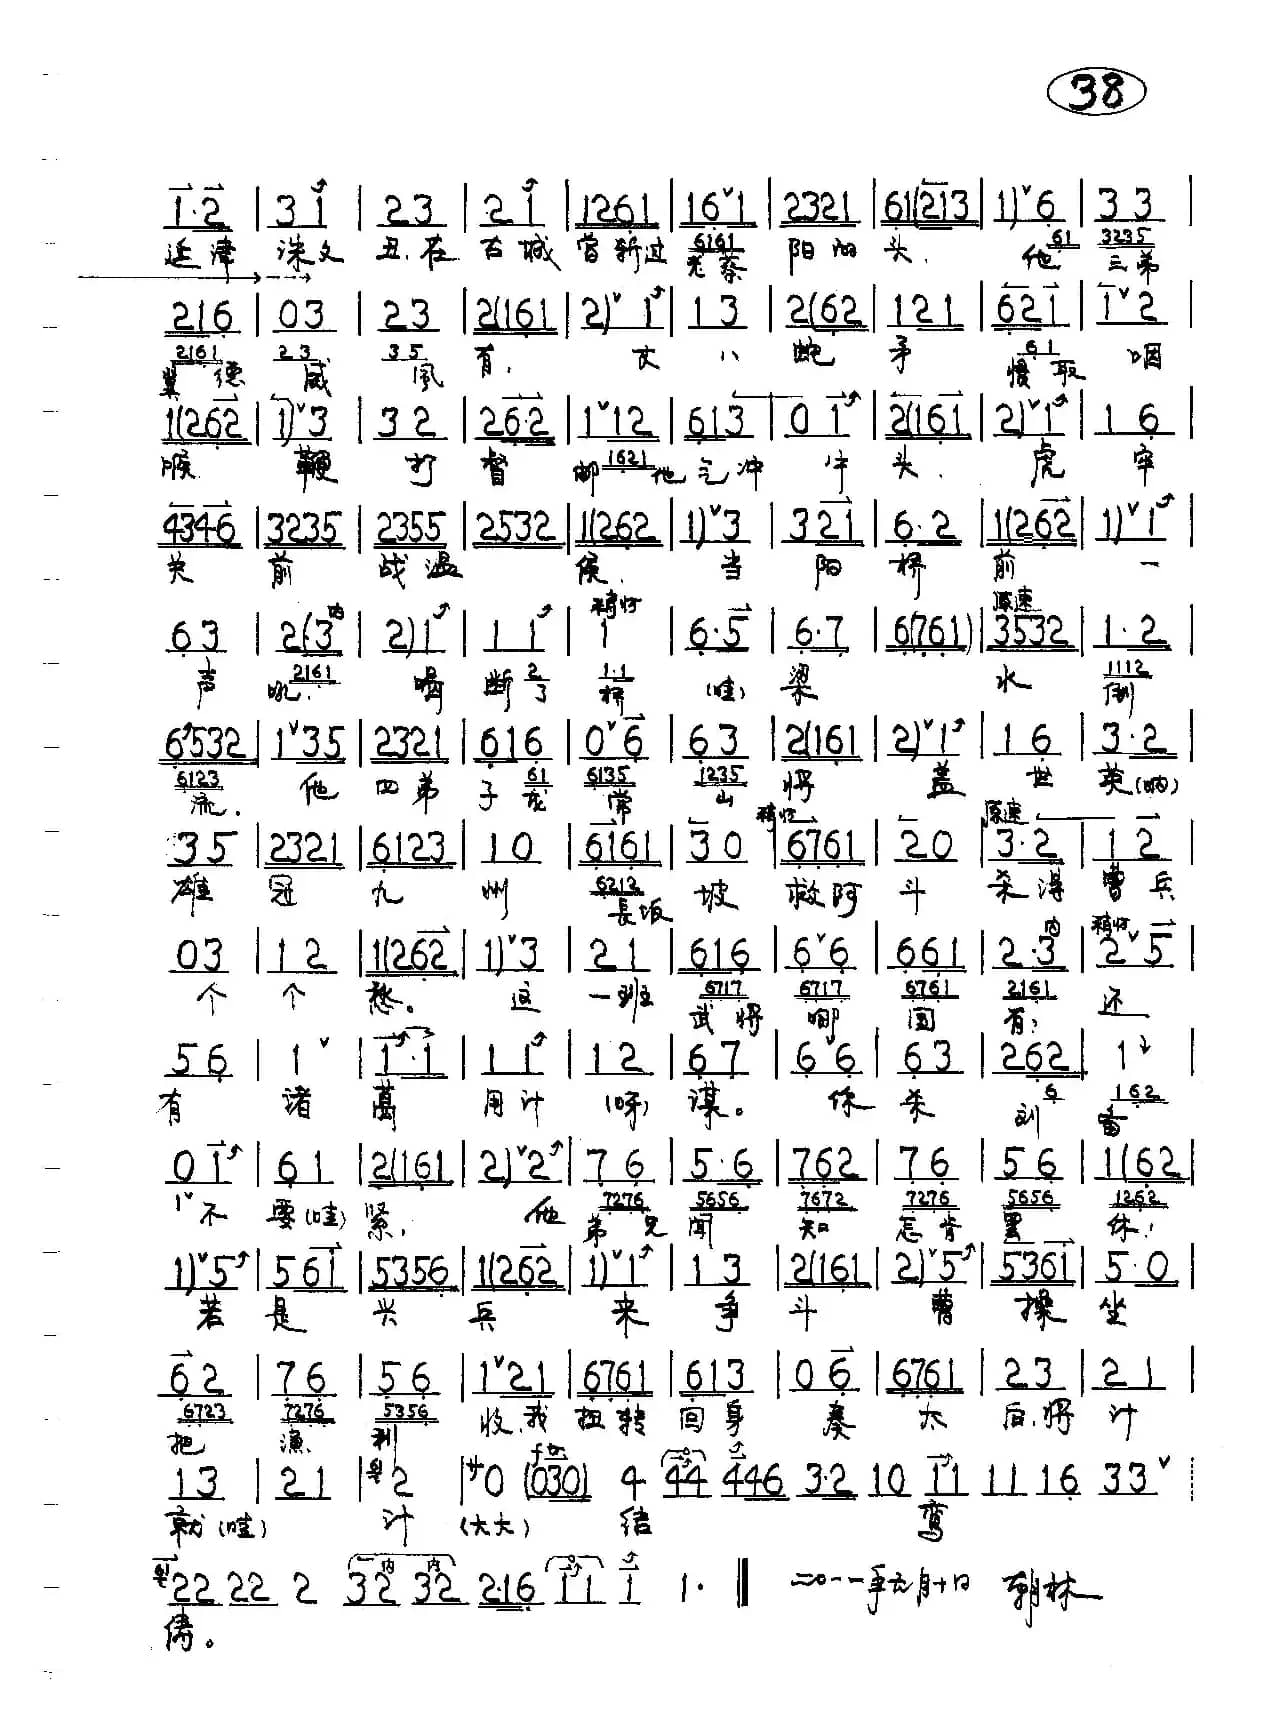 38
1·2 | 31 | 23 | ·21 | 1261 | 16ˇ1 | 2321 | 61(213 | 1)ˇ6 | 33 |
延津 诛文 丑,在 古城 曾斩过 6161 老蔡 阳的 头. 他 61 3235 三弟
216 | 03 | 23 | 2(161 | 2)ˇ1 | 13 | 2(62 | 121 | 621 | 1ˇ2
2161 翼德 23 威 35 風 有, 丈 八 蛇 矛 61 慢取 咽
1(262 | 1)ˇ3 | 32 | 262 | 1ˇ12 | 613 | 01 | 2(161 | 2)ˇ1 | 16 |
喉. 鞭 打 督 邮 1621 他气冲 斗 头. 虎 牢
4346 | 3235 | 2355 | 2532 | 1(262 | 1)ˇ3 | 321 | 6·2 | 1(262 | 1)ˇ1 |
关 前 战温 侯. 当 阳 桥 前 一
稍慢 原速
63 | 2(3 内 | 2)1 | 11 | 1 | 6·5 | 6·7 | 6(761) | 3532 | 1·2 |
声 吼. 2161 喝 断 2 了 1·1 桥 (哇) 梁 水 1112 倒
6532 | 1ˇ35 | 2321 | 616 | 0ˇ6 | 63 | 2(161 | 2)ˇ1 | 16 | 3·2 |
6123 流. 他 四弟 子 61 龙 6135 常 1235 山 将 盖 世 英(呐)
稍慢 原速
35 | 2321 | 6123 | 10 | 6161 | 30 | 6761 | 20 | 3·2 | 12 |
雄 冠 九 州 6213 長坂 坡 救阿 斗 杀得 曹兵
03 | 12 | 1(262 | 1)ˇ3 | 21 | 616 | 6ˇ6 | 661 | 2·3 内 | 稍慢 2ˇ5 |
个 个 愁。 这 一班 6717 武将 6717 哪 6761 国 2161 有, 还
56 | 1ˇ | 1·1 | 11 | 12 | 67 | 6ˇ6 | 63 | 262 | 1 |
有 诸 葛 用计 (呀) 谋。 你 杀 刘 6 162 备
01 | 61 | 2(161 | 2)ˇ2 | 76 | 5·6 | 762 | 76 | 56 | 1(62 |
1ˇ不 要(哇) 紧, 他 7276 弟兄 5656 闻 7672 知 7276 怎肯 5656 罢 1262 休,
1)ˇ5 | 561 | 5356 | 1(262 | 1)ˇ1 | 13 | 2(161 | 2)ˇ5 | 5361 | 5·0 |
若 是 兴 兵 来 争 斗 曹 操 坐
62 | 76 | 56 | 1ˇ21 | 6761 | 613 | 06 | 6761 | 23 | 21 |
6723 把 7276 渔 5356 利 收,我 扭转 回身 奏 太 后,将 计
13 | 21 | 2 | 0 (030) 4 44 446 3·2 10 11 11 16 33ˇ
就(哇) 计 (大大) 结 鸾
22 22 2 32 内 32 内 2·16 11 1 1· ‖ 二〇一一年元月十日 朝林
俦。